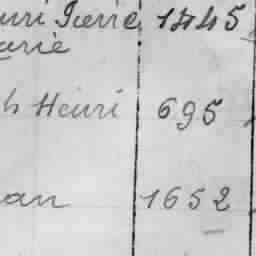 uri Pierre 1445
arie
h Henri 695
an 1652